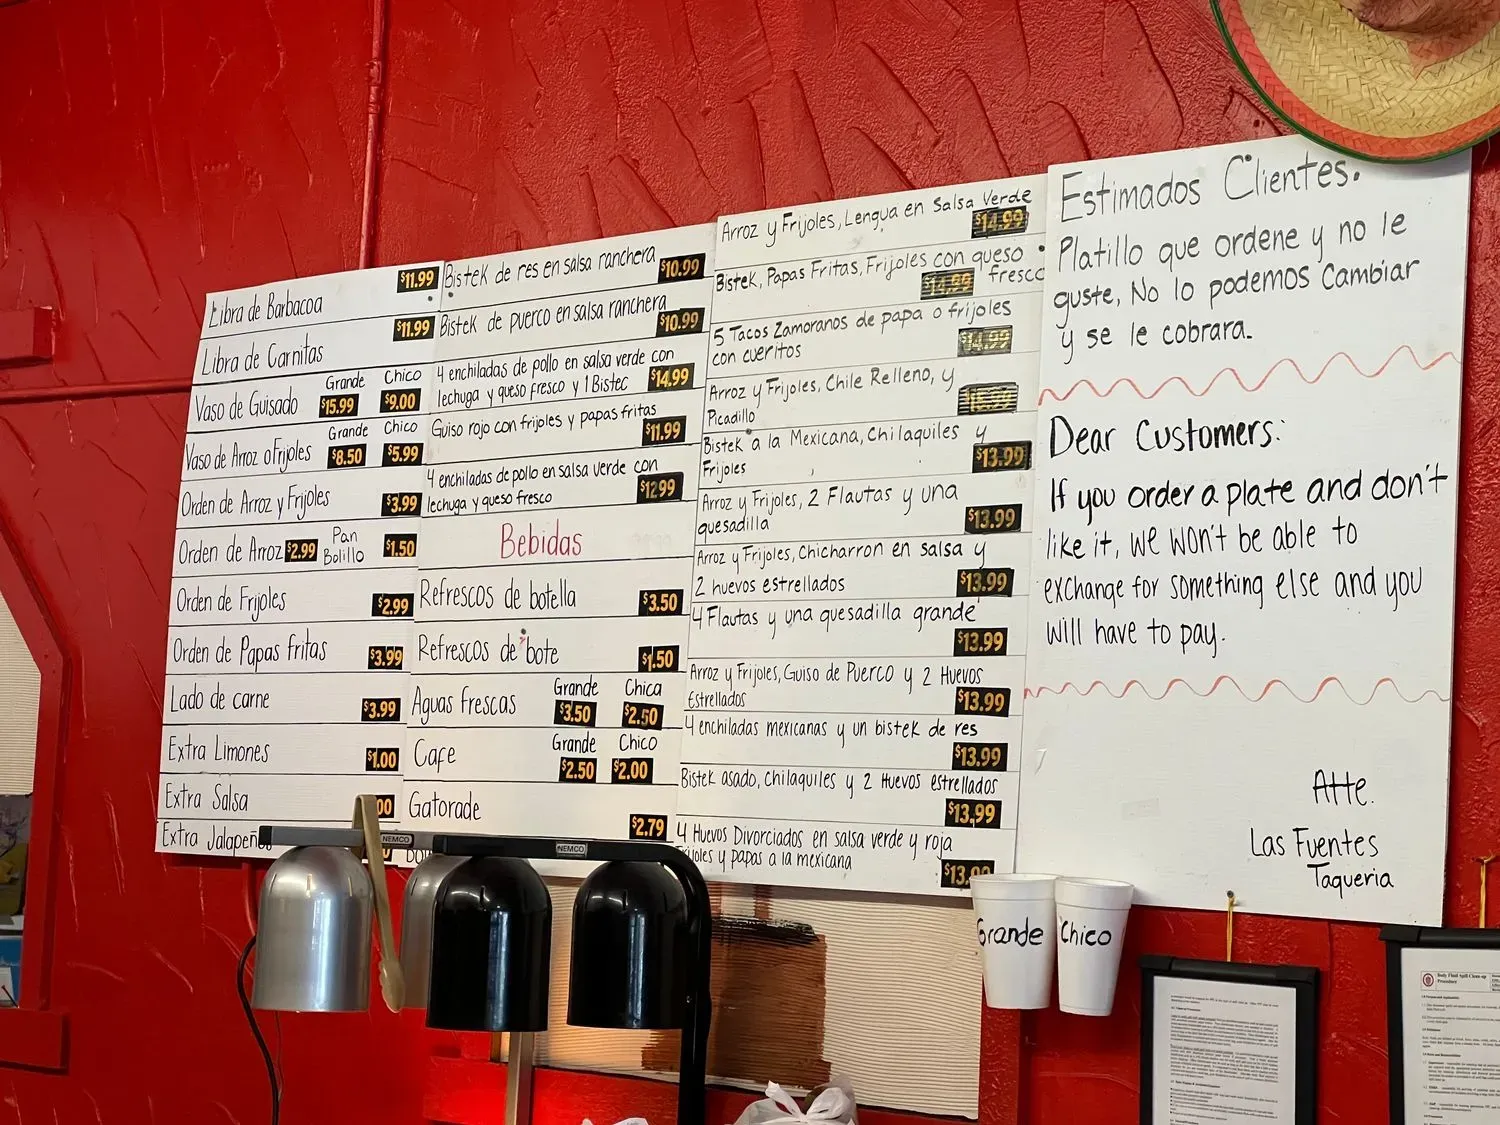 Libra de Barbacoa $11.99
Libra de Carnitas $11.99
Grande Chico
Vaso de Guisado $15.99 $9.00
Grande Chico
Vaso de Arroz o Frijoles $8.50 $5.99
Orden de Arroz y Frijoles $3.99
Orden de Arroz $2.99 Pan Bolillo $1.50
Orden de Frijoles $2.99
Orden de Papas fritas $3.99
Lado de carne $3.99
Extra Limones $1.00
Extra Salsa 00
Extra Jalapeño
Bistek de res en salsa ranchera $10.99
Bistek de puerco en salsa ranchera $10.99
4 enchiladas de pollo en salsa verde con
lechuga y queso fresco y 1 Bistec $14.99
Guiso rojo con frijoles y papas fritas $11.99
4 enchiladas de pollo en salsa verde con
lechuga y queso fresco $12.99
Bebidas
Refrescos de botella $3.50
Refrescos de bote $1.50
Grande Chica
Aguas Frescas $3.50 $2.50
Grande Chico
Cafe $2.50 $2.00
Gatorade $2.79
Arroz y Frijoles, Lengua en Salsa Verde
$14.99
Bistek, Papas Fritas, Frijoles con queso
$14.99 fresco
5 Tacos Zamoranos de papa o frijoles
con cueritos $14.99
Arroz y Frijoles, Chile Relleno, y
Picadillo
Bistek a la Mexicana, Chilaquiles y
Frijoles $13.99
Arroz y Frijoles, 2 Flautas y una
quesadilla $13.99
Arroz y Frijoles, Chicharron en salsa y
2 huevos estrellados $13.99
4 Flautas y una quesadilla grande
$13.99
Arroz y Frijoles, Guiso de Puerco y 2 Huevos
Estrellados $13.99
4 enchiladas mexicanas y un bistek de res
$13.99
Bistek asado, Chilaquiles y 2 Huevos estrellados
$13.99
4 Huevos Divorciados en salsa verde y roja
y papas a la mexicana $13.99
Estimados Clientes.
Platillo que ordene y no le
guste, No lo podemos Cambiar
y se le cobrara.
Dear Customers:
If you order a plate and don't
like it, we won't be able to
exchange for something else and you
will have to pay.
Atte.
Las Fuentes
Taqueria
NEMCO
NEMCO
Grande
Chico
Body Fluid Spill Clean-up
Procedure